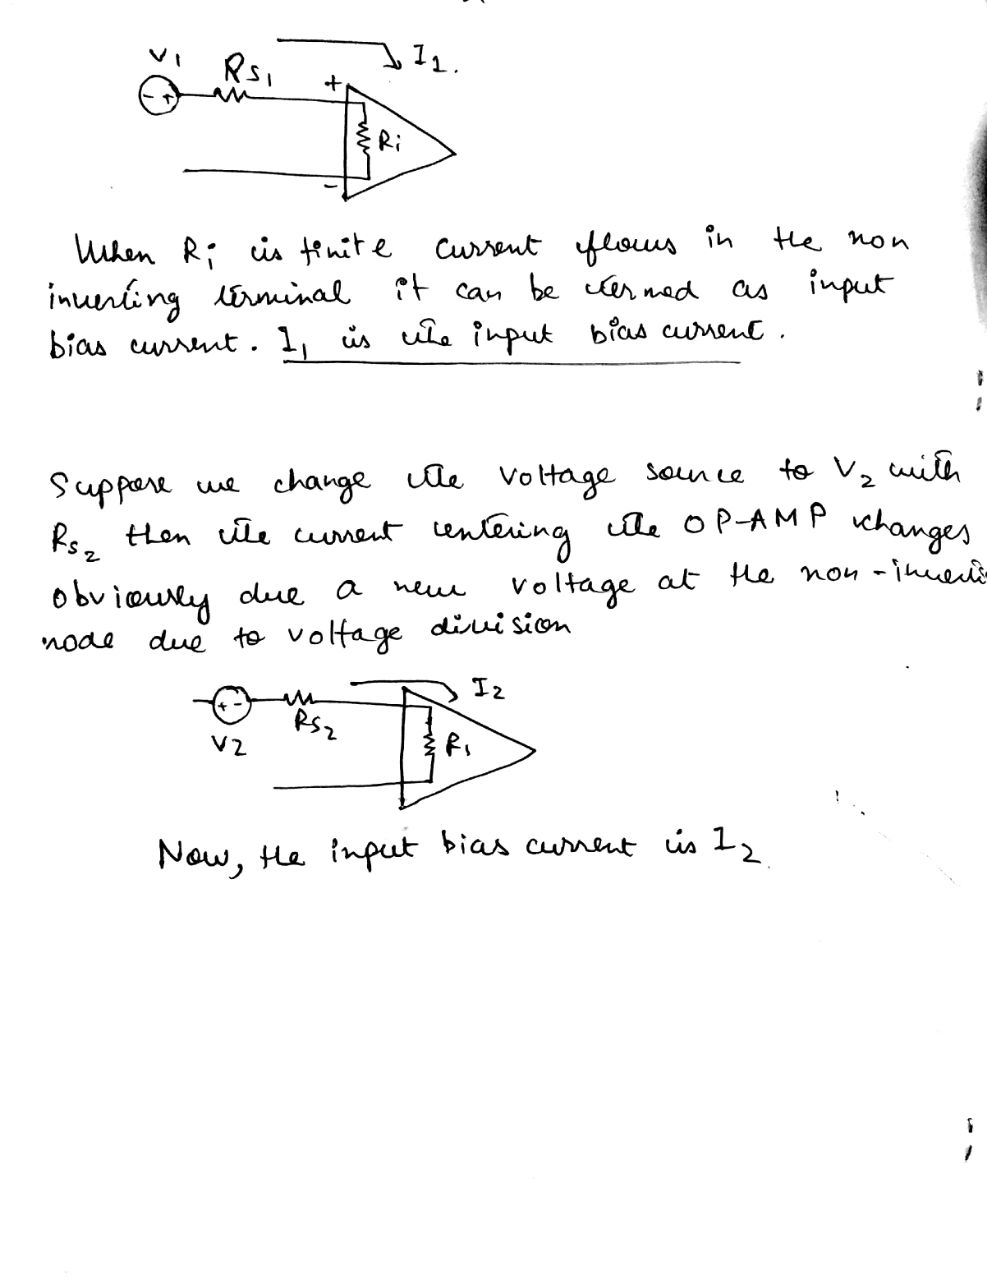 V1
RS1
I1.
+
- +
Ri
-
When Ri is finite current flows in the non
inverting terminal it can be termed as input
bias current. I1 is the input bias current.
Suppose we change the voltage source to V2 with
RS2 then the current entering the OP-AMP changes
obviously due a new voltage at the non-inverti
node due to voltage division
I2
+ -
RS2
V2
R1
Now, the input bias current is I2